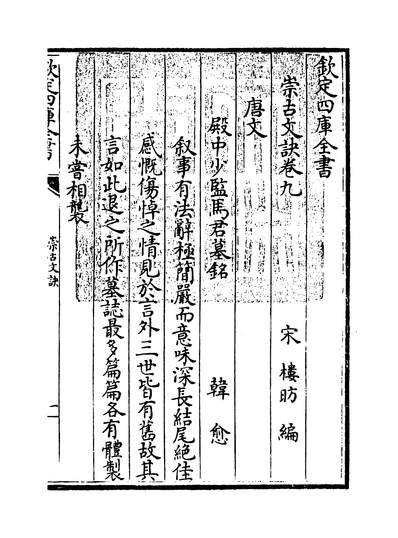 欽定四庫全書
崇古文訣卷九
宋 樓昉 編
唐文
殿中少監馬君墓銘
韓愈
叙事有法辭極簡嚴而意味深長結尾絶佳
感慨傷悼之情見於言外三世皆有舊故其
言如此退之所作墓誌最多篇篇各有體製
未嘗相襲
欽定四庫全書
崇古文訣
一